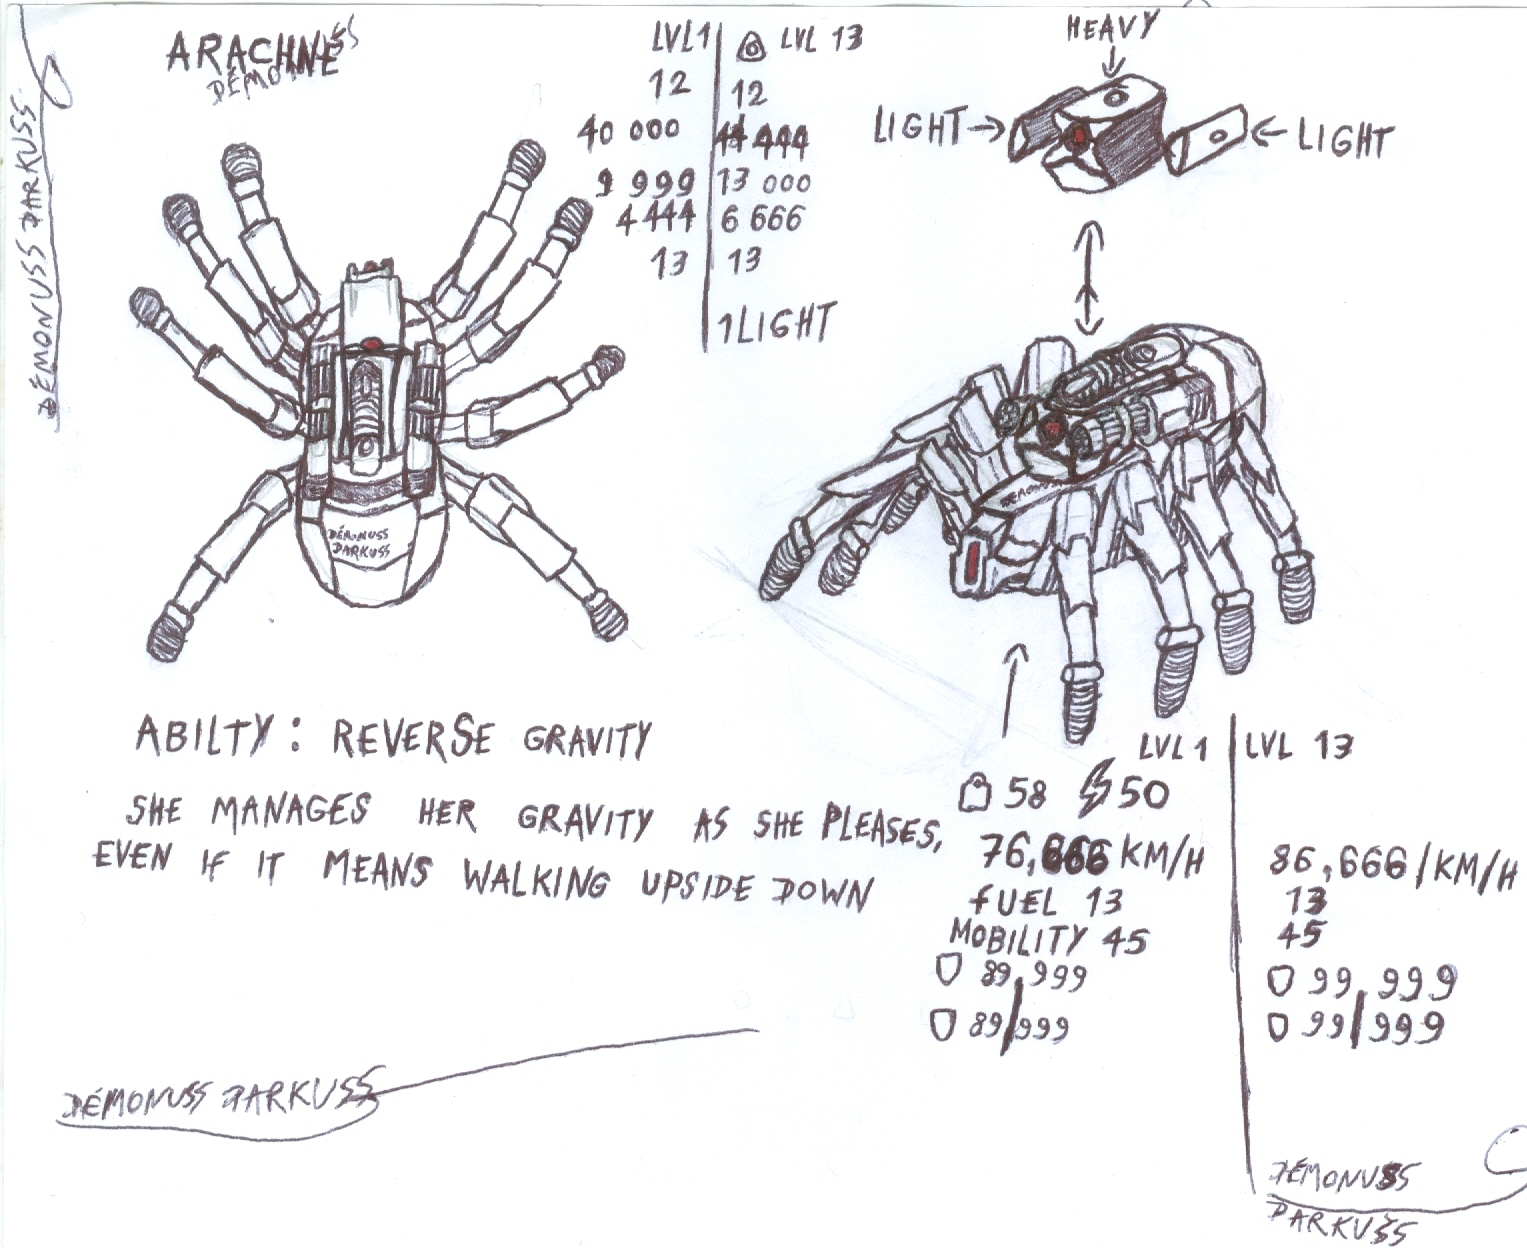 ARACHNÉ
DÉMONUSS DARKUSS
LVL 1 LVL 13
12 12
40 000 44 444
9 999 13 000
4 444 6 666
13 13
1 LIGHT
HEAVY
LIGHT LIGHT
DÉMONUSS
DARKUSS
ABILTY : REVERSE GRAVITY
SHE MANAGES HER GRAVITY AS SHE PLEASES,
EVEN IF IT MEANS WALKING UPSIDE DOWN
LVL 1 LVL 13
58 50
76,666 KM/H 86,666/KM/H
FUEL 13 13
MOBILITY 45 45
89,999 99,999
89/999 99/999
DÉMONUSS DARKUSS
DÉMONUSS
DARKUSS